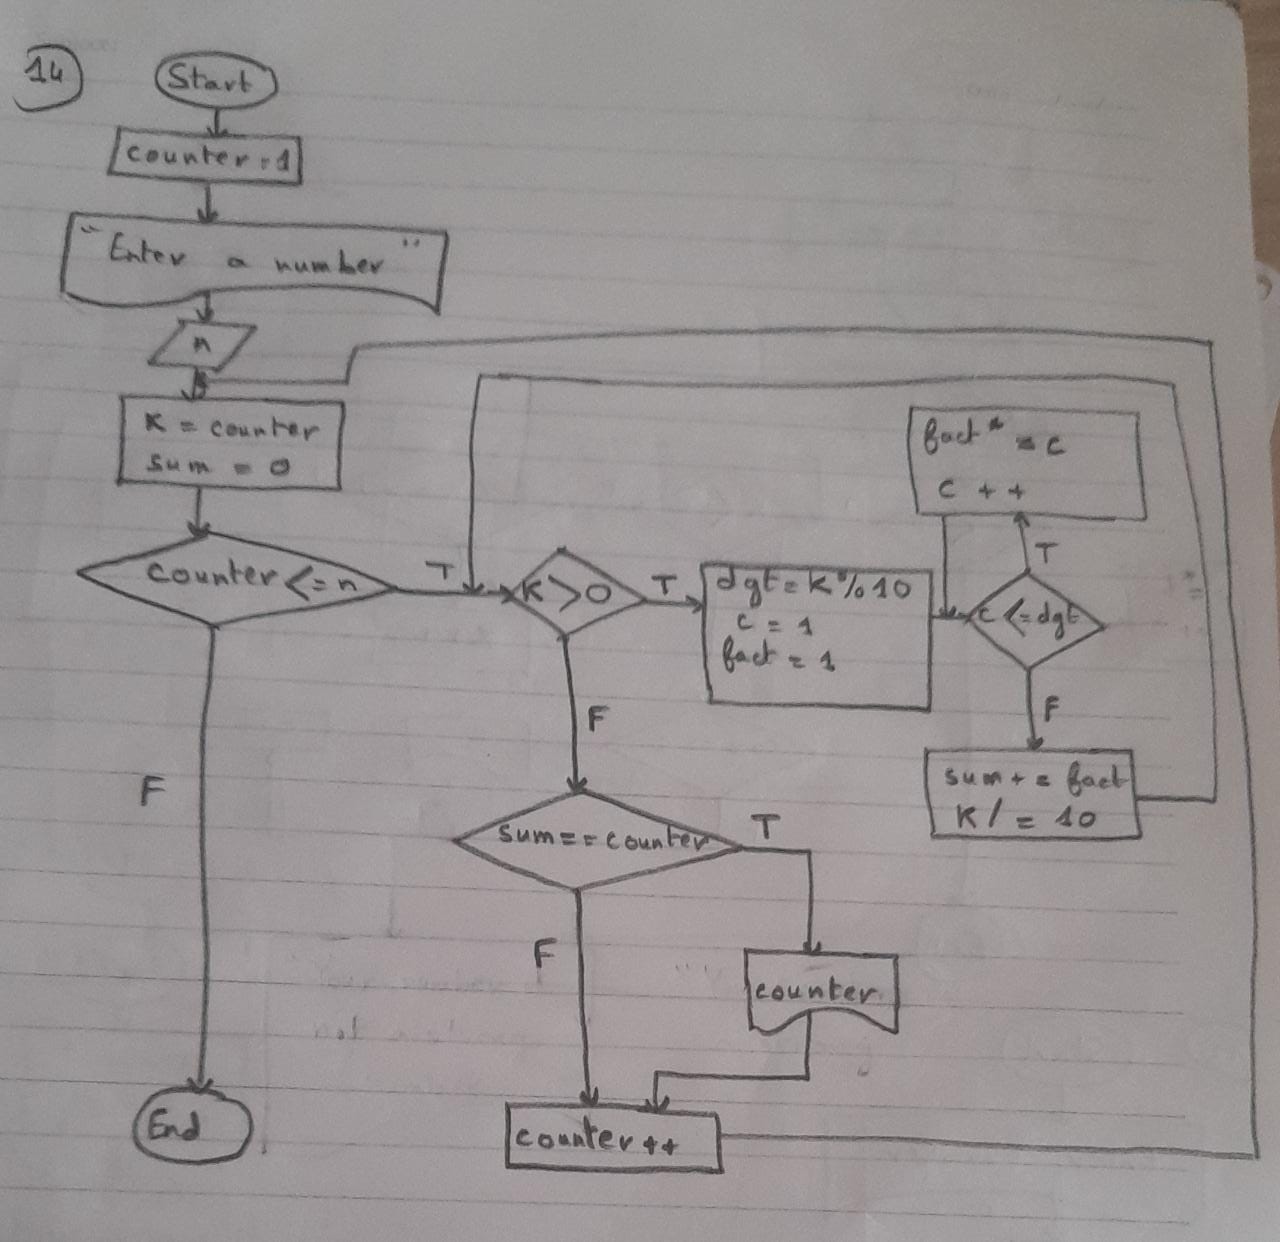 14
Start
counter = 1
"Enter a number"
n
K = counter
sum = 0
counter <= n
T
F
End
K > 0
T
F
dgt = k % 10
c = 1
fact = 1
c <= dgt
T
fact * = c
c + +
F
sum + = fact
K / = 10
sum == counter
T
F
counter
counter ++